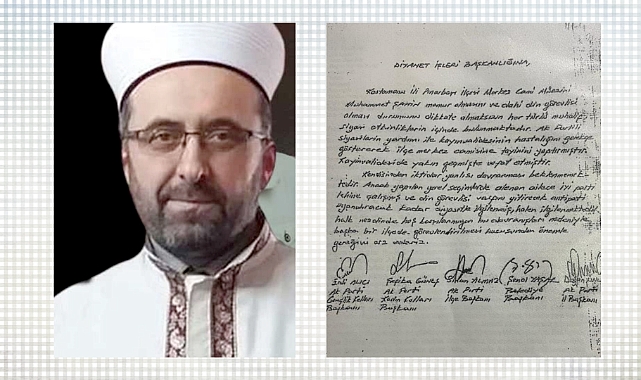 DİYANET İŞLERİ BAŞKANLIĞINA,
Kastamonu İli Araç İlçesi Merkez Cami Müezzini
Muhammet memur olmanın ve dahi din görevlisi
olması durumunu dikkate almaksızın her türlü muhalif
siyasi etkinliklerin içinde bulunmaktadır. Ak Partili
siyasilerin yardımı ile kayınvalidesinin hastalığını gerekçe
göstererek ilçe merkez camisine tayinini yaptırmıştır.
Kayınvalideside yakın geçmişte vefat etmiştir.
Kendisinden iktidar yanlısı davranması beklenmemek-
tedir. Ancak yapılan yerel seçimlerde alenen iyi parti
lehine çalışmış ve din görevlisi vasfını yitirecek antipati
uyandıracak kadar siyasetle ilgilenmiş, halen ilgilenmektedir.
halk nezdinde hoş karşılanmayan bu davranışları nedeniyle
başka bir ilçede görevlendirilmesi hususunda önemle
gereğini arz ederiz.
Ak Parti Ak Parti Ak Parti Belediye Ak Parti
Gençlik Kolları Kadın Kolları İlçe Başkanı Başkanı İl Başkanı
Başkanı Başkanı